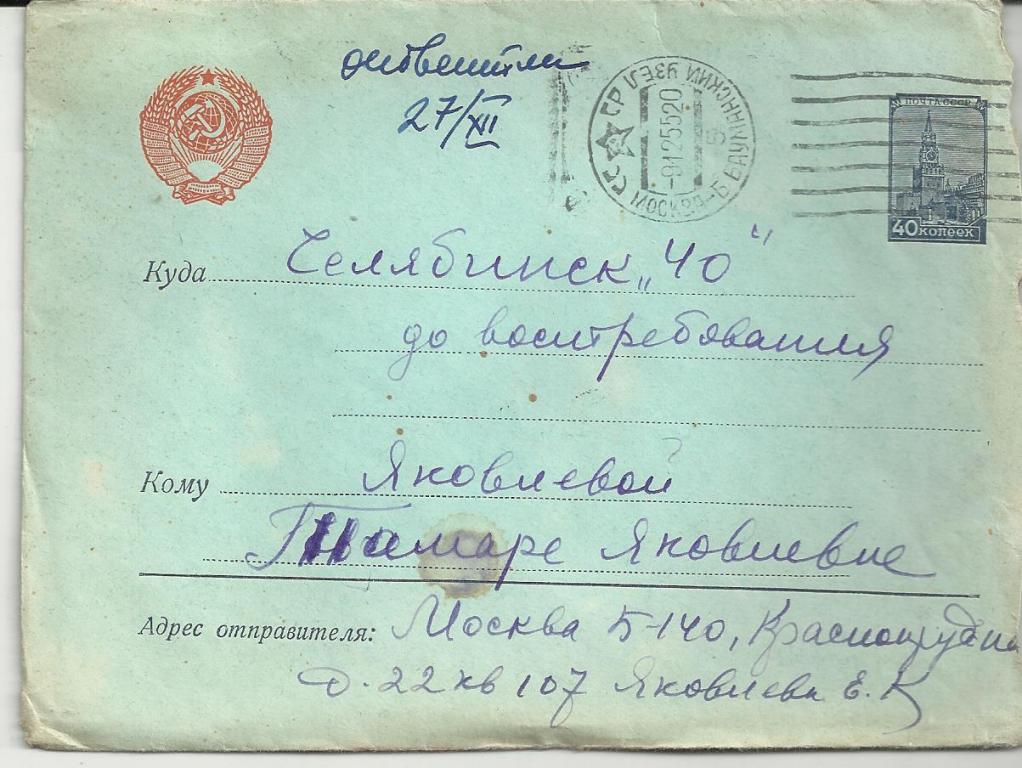 ответила
27/XII
СССР
МОСКВА-Б. БАУМАНСКИЙ УЗЕЛ
-9125520
ПОЧТА СССР
40 копеек
Куда Челябинск „40"
до востребования
Кому Яковлевой
Тамаре Яковлевне
Адрес отправителя: Москва Б-140, Краснопрудная
д. 22 кв 107 Яковлева Е. К